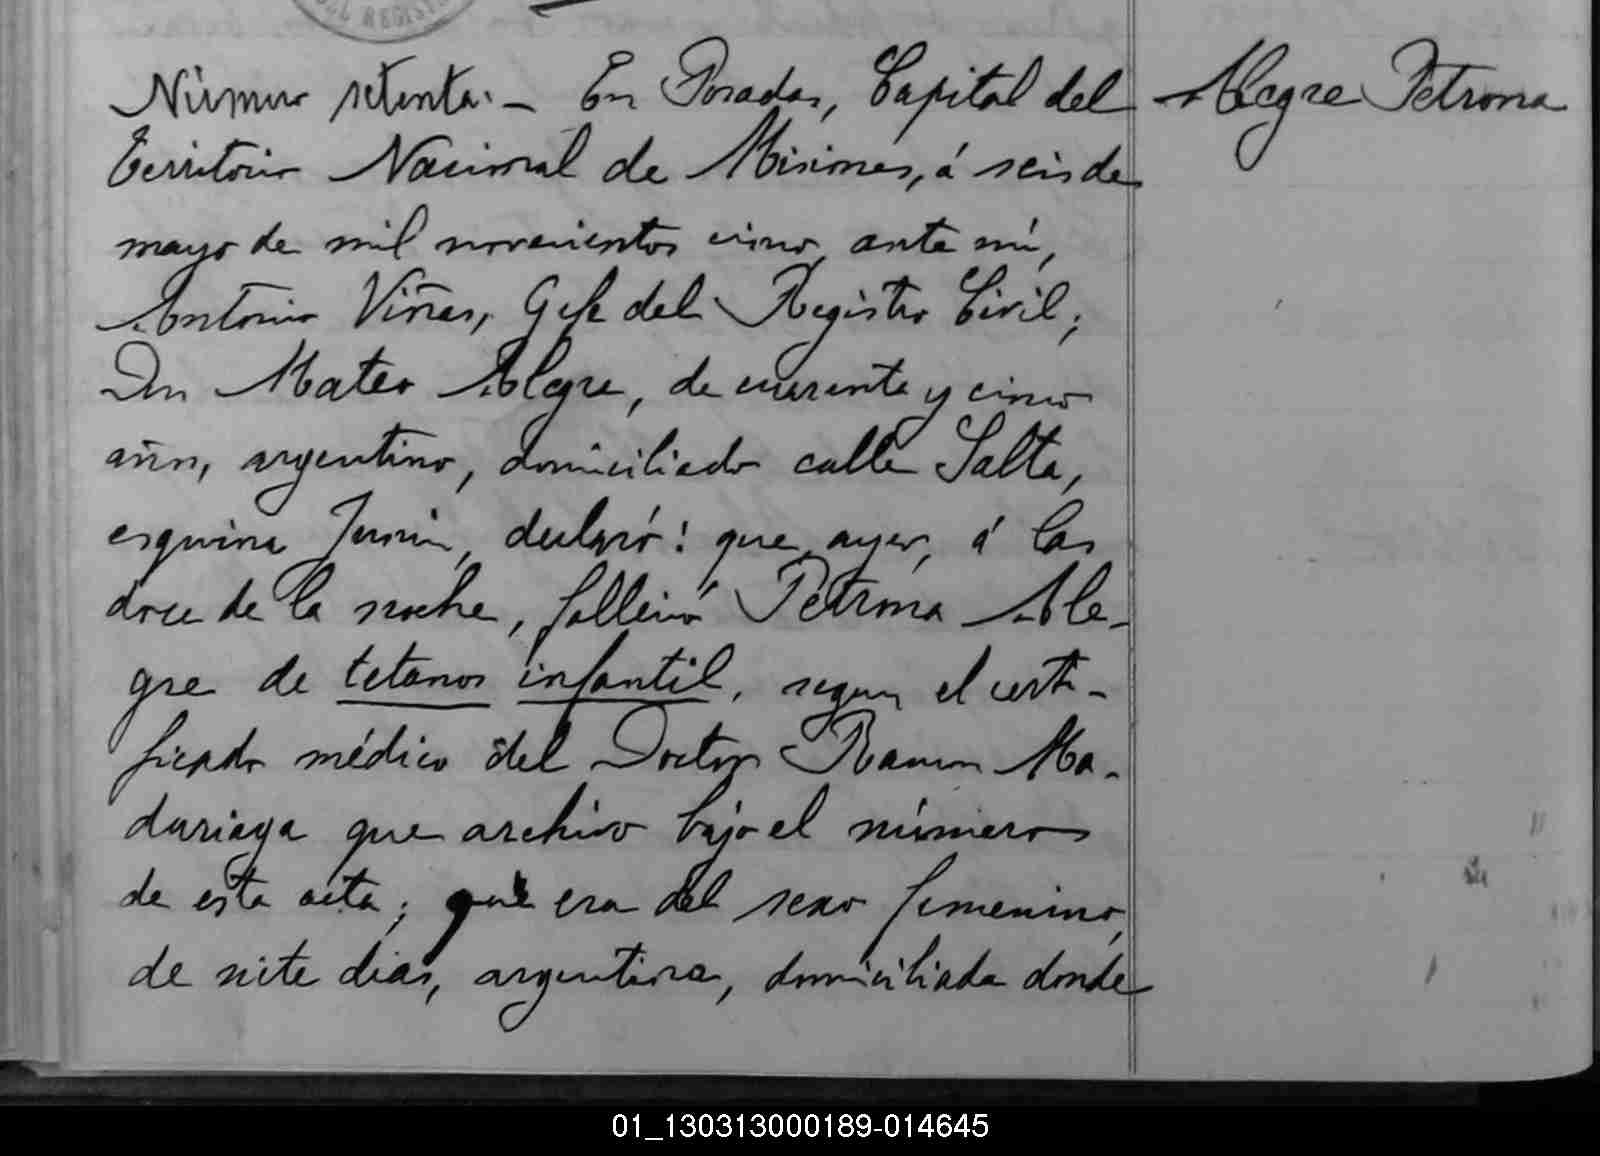 DEL REGISTR
Número setenta.- En Posadas, Capital del
Alegre Petrona
Territorio Nacional de Misiones, á seis de
mayo de mil novecientos cinco, ante mí,
Antonio Viñas, Gefe del Registro Civil;
Don Mateo Alegre, de cuarenta y cinco
años, argentino, domiciliado calle Salta,
esquina Junin, declaró: que, ayer, á las
doce de la noche, falleció Petrona Ale-
gre de tetanos infantil, segun el certi-
ficado médico del Doctor Ramon Ma-
dariaga que archivo bajo el número
de esta acta; que era del sexo femenino,
de siete dias, argentina, domiciliada donde
01_130313000189-014645